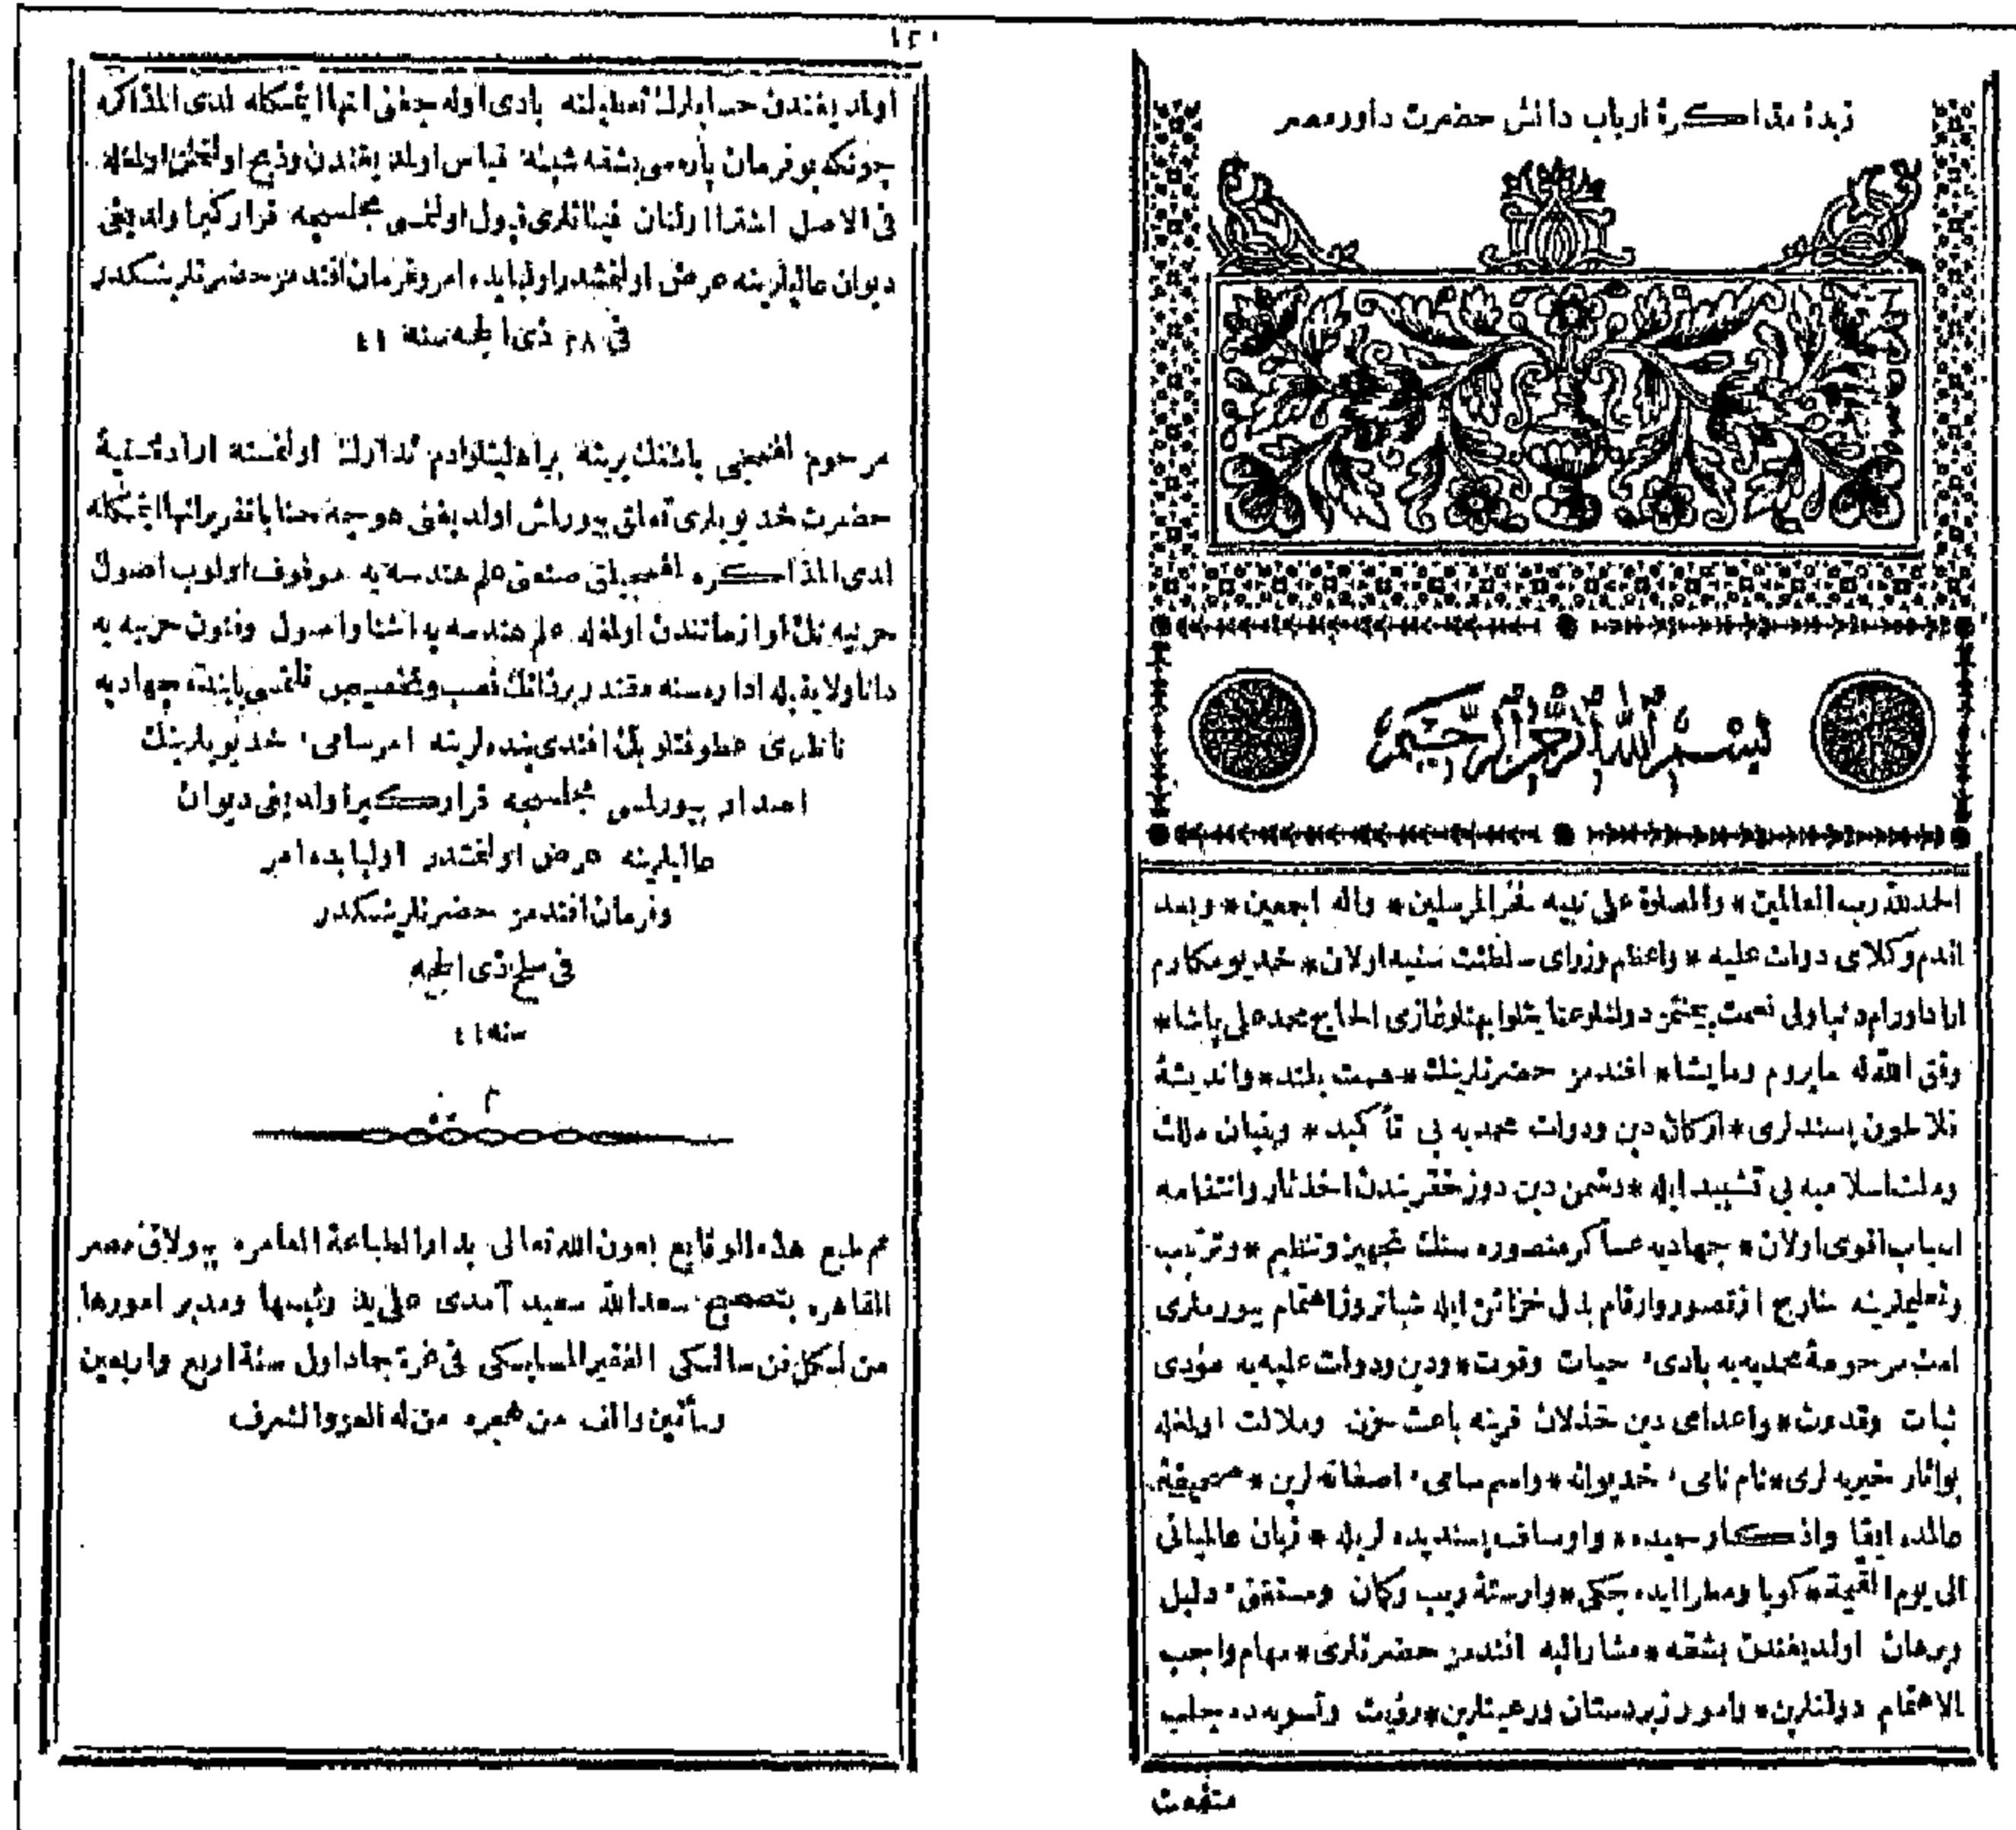 زبدۀ مذاكرۀ ارباب دانش حضرت داور مصر
بسم الله الرحمن الرحيم
الحمد لله رب العالمين * والصلوة على نبيه فخر المرسلين * واله اجمعين * وبعد
افخم وكلاى دولت عليه * واعظم وزراى سلطنت سنيه اولان * خديو مكارم
ارا داورام دنيا ولى نعمت بيمنتمز دولتلو عنايتلو ابهتلو غازى الحاج محمد على پاشا *
وفق الله له ما يروم وما يشا * افندمز حضرتلرينك * همت بلند * وانديشۀ
فلاطون پسندلرى * اركان دين ودولت محمديه يى تأكيد * وبنيان ملك
وملت اسلاميه يى تشييد ايله * دشمن دين دوزخقريندن اخذ ثار وانتقامه
اسباب اقوى اولان * جهاديه عساكر منصوره سنك تجهيز وتنظيم * وترتيب
وتعليملرينه خارج از تصور وارقام بذل خزائن ايله شبانروز اهتمام بيورملرى
امت مرحومۀ محمديه يه بادىء حيات وقوت * ودين ودولت عليه يه مؤدى
ثبات وقدمت * واعداى دين خذلان قرينه باعث حزن وملالت اولغله
بو اثار خيريه لرى * نام نامىء خديوانه * واسم سامىء اصفانه لرين * صحيفۀ
عالمده ابقا واذكار جميده * واوصاف پسنديده لريله * زبان عالميانى
الى يوم القيمة * كويا ومطرا ايده جكى * وارستۀ ريب وكمان ومستغنىء دليل
وبرهان اولديغندن بشقه * مشاراليه افندمز حضرتلرى * مهام واجب
الاهتمام دولتلرين * وامور زيردستان ورعيتلرين * رؤيت وتسويه ده جلب
منفعت
١٢٠
اولديغندن حسابلرك تعطيلنه بادى اوله جغنى انها ايتمكله لدى المذاكره
چونكه بو فرمان پاره سى بشقه شيئه قياس اولنديغندن وذبح اولنمش اولمغله
فى الاصل اشترا اولنان فيئاتلرى قبول اولنمسى مجلسجه قرار كير اولديغى
ديوان عاليلرينه عرض اولنمشدر اولبابده امر وفرمان افندمز حضرتلرينكدر
فى ٢٨ ذى الحجه سنه ٤١
مرحوم لغمجى باشنك يرينه بر اهليتلو ادم تدارك اولنمسنه ارادۀ سنيۀ
حضرت خديويلرى تعلق بيورلمش اولديغنى هوجه حنا با تقرير انها ايتمكله
لدى المذاكره لغمجيلق صنعتى علم هندسه يه موقوف اولوب اصول
حربيه نك لوازماتندن اولمغله علم هندسه يه اشنا واصول وفنون حربيه يه
دانا ولايقيله اداره سنه مقتدر بر ذاتك نصب وتخصيص قلنمسى بابنده جهاديه
ناظرى عطوفتلو بك افندى بنده لرينه امر سامىء خديويلرينك
اصدار بيورلمسى مجلسجه قرار كير اولديغى ديوان
عاليلرينه عرض اولنمشدر اولبابده امر
وفرمان افندمز حضرتلرينكدر
فى سلخ ذى الحجه
سنه ٤١
م
تم طبع هذه الوقايع بعون الله تعالى بدار الطباعة العامره ببولاق مصر
القاهره بتصحيح سعدالله سعيد آمدى على يد رئيسها ومدبر امورها
من لكل فن سالكى الفقير السابسكى فى غرة جماد اول سنة اربع واربعين
ومأتين والف من هجره من له العز والشرف